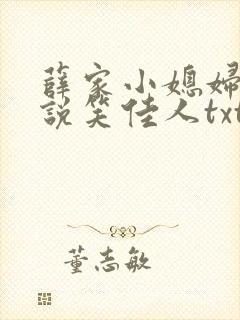 薛家小媳妇
説笑佳人txt
董志敏